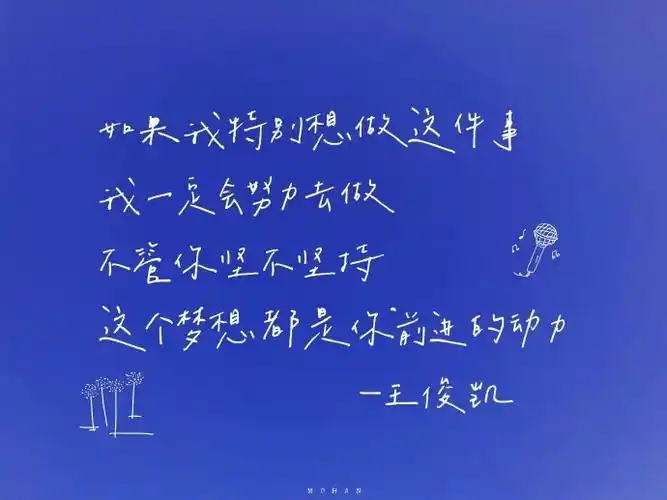 如果我特别想做这件事
我一定会努力去做
不管你坚不坚持
这个梦想都是你前进的动力
—王俊凯
MOHAN